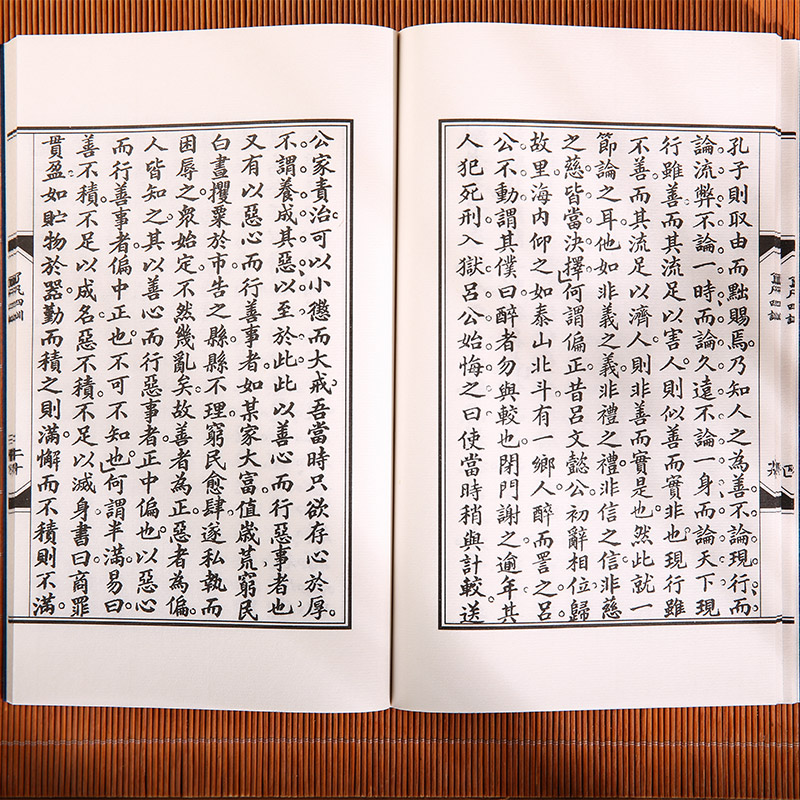 孔子則取由而黜賜焉。乃知人之為善。不論現行。而
論流弊。不論一時。而論久遠。不論一身。而論天下。現
行雖善。而其流足以害人。則似善而實非也。現行雖
不善。而其流足以濟人。則非善而實是也。然此就一
節論之耳。他如非義之義。非禮之禮。非信之信。非慈
之慈。皆當決擇。何謂偏正。昔呂文懿公初辭相位。歸
故里。海內仰之。如泰山北斗。有一鄉人醉而詈之。呂
公不動。謂其僕曰。醉者勿與較也。閉門謝之。逾年。其
人犯死刑入獄。呂公始悔之曰。使當時稍與計較。送
公家責治。可以小懲而大戒。吾當時只欲存心於厚。
不謂養成其惡。以至於此。此以善心而行惡事者也。
又有以惡心而行善事者。如某家大富。值歲荒。窮民
白晝攫粟於市。告之縣。縣不理。窮民愈肆。遂私執而
困辱之。眾始定。不然幾亂矣。故善者為正。惡者為偏。
人皆知之。其以善心而行惡事者。正中偏也。以惡心
而行善事者。偏中正也。不可不知也。何謂半滿。易曰。
善不積。不足以成名。惡不積。不足以滅身。書曰。商罪
貫盈。如貯物於器。勤而積之則滿。懈而不積則不滿。